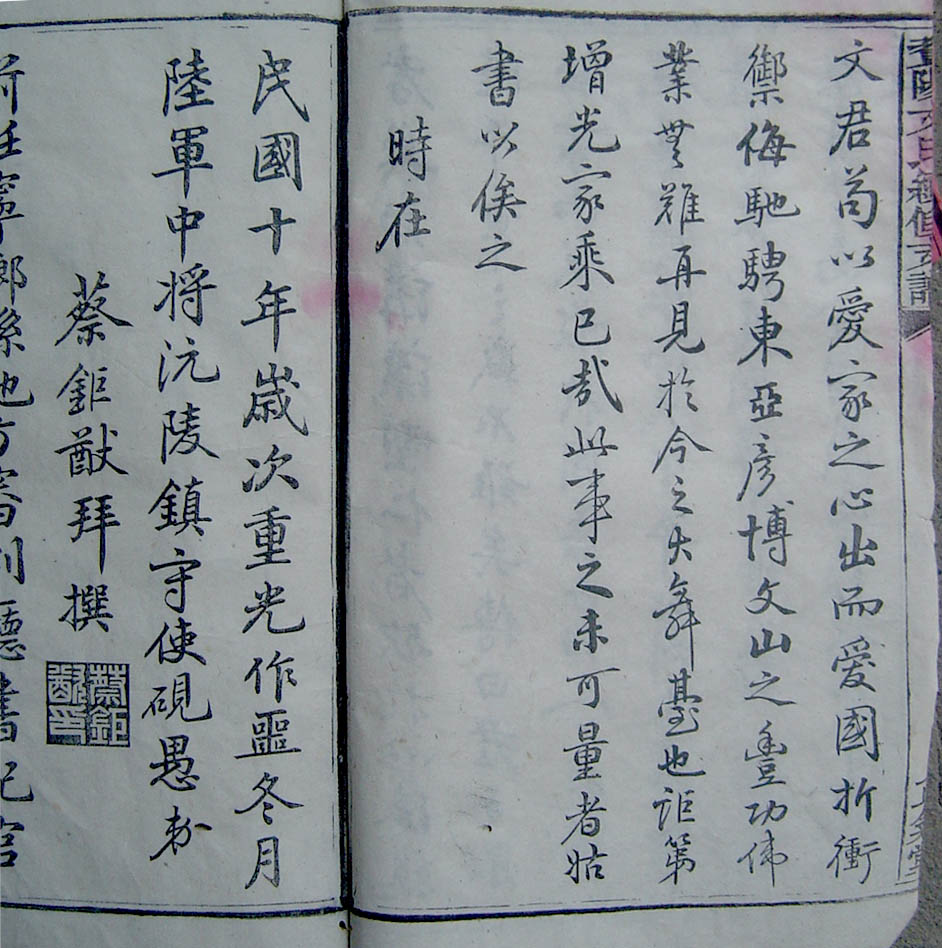 文氏續修支譜
文君苟以愛家之心出而愛國折衝
禦侮馳騁東亞彥博文山之豐功偉
業無難再見於今之大舞臺也詎第
增光家乘已哉此事之未可量者姑
書以俟之
時在
民國十年歲次重光作噩冬月
陸軍中將沅陵鎮守使硯愚弟
蔡鉅猷拜撰
蔡鉅猷印
前任寧鄉縣地方審判廳書記官